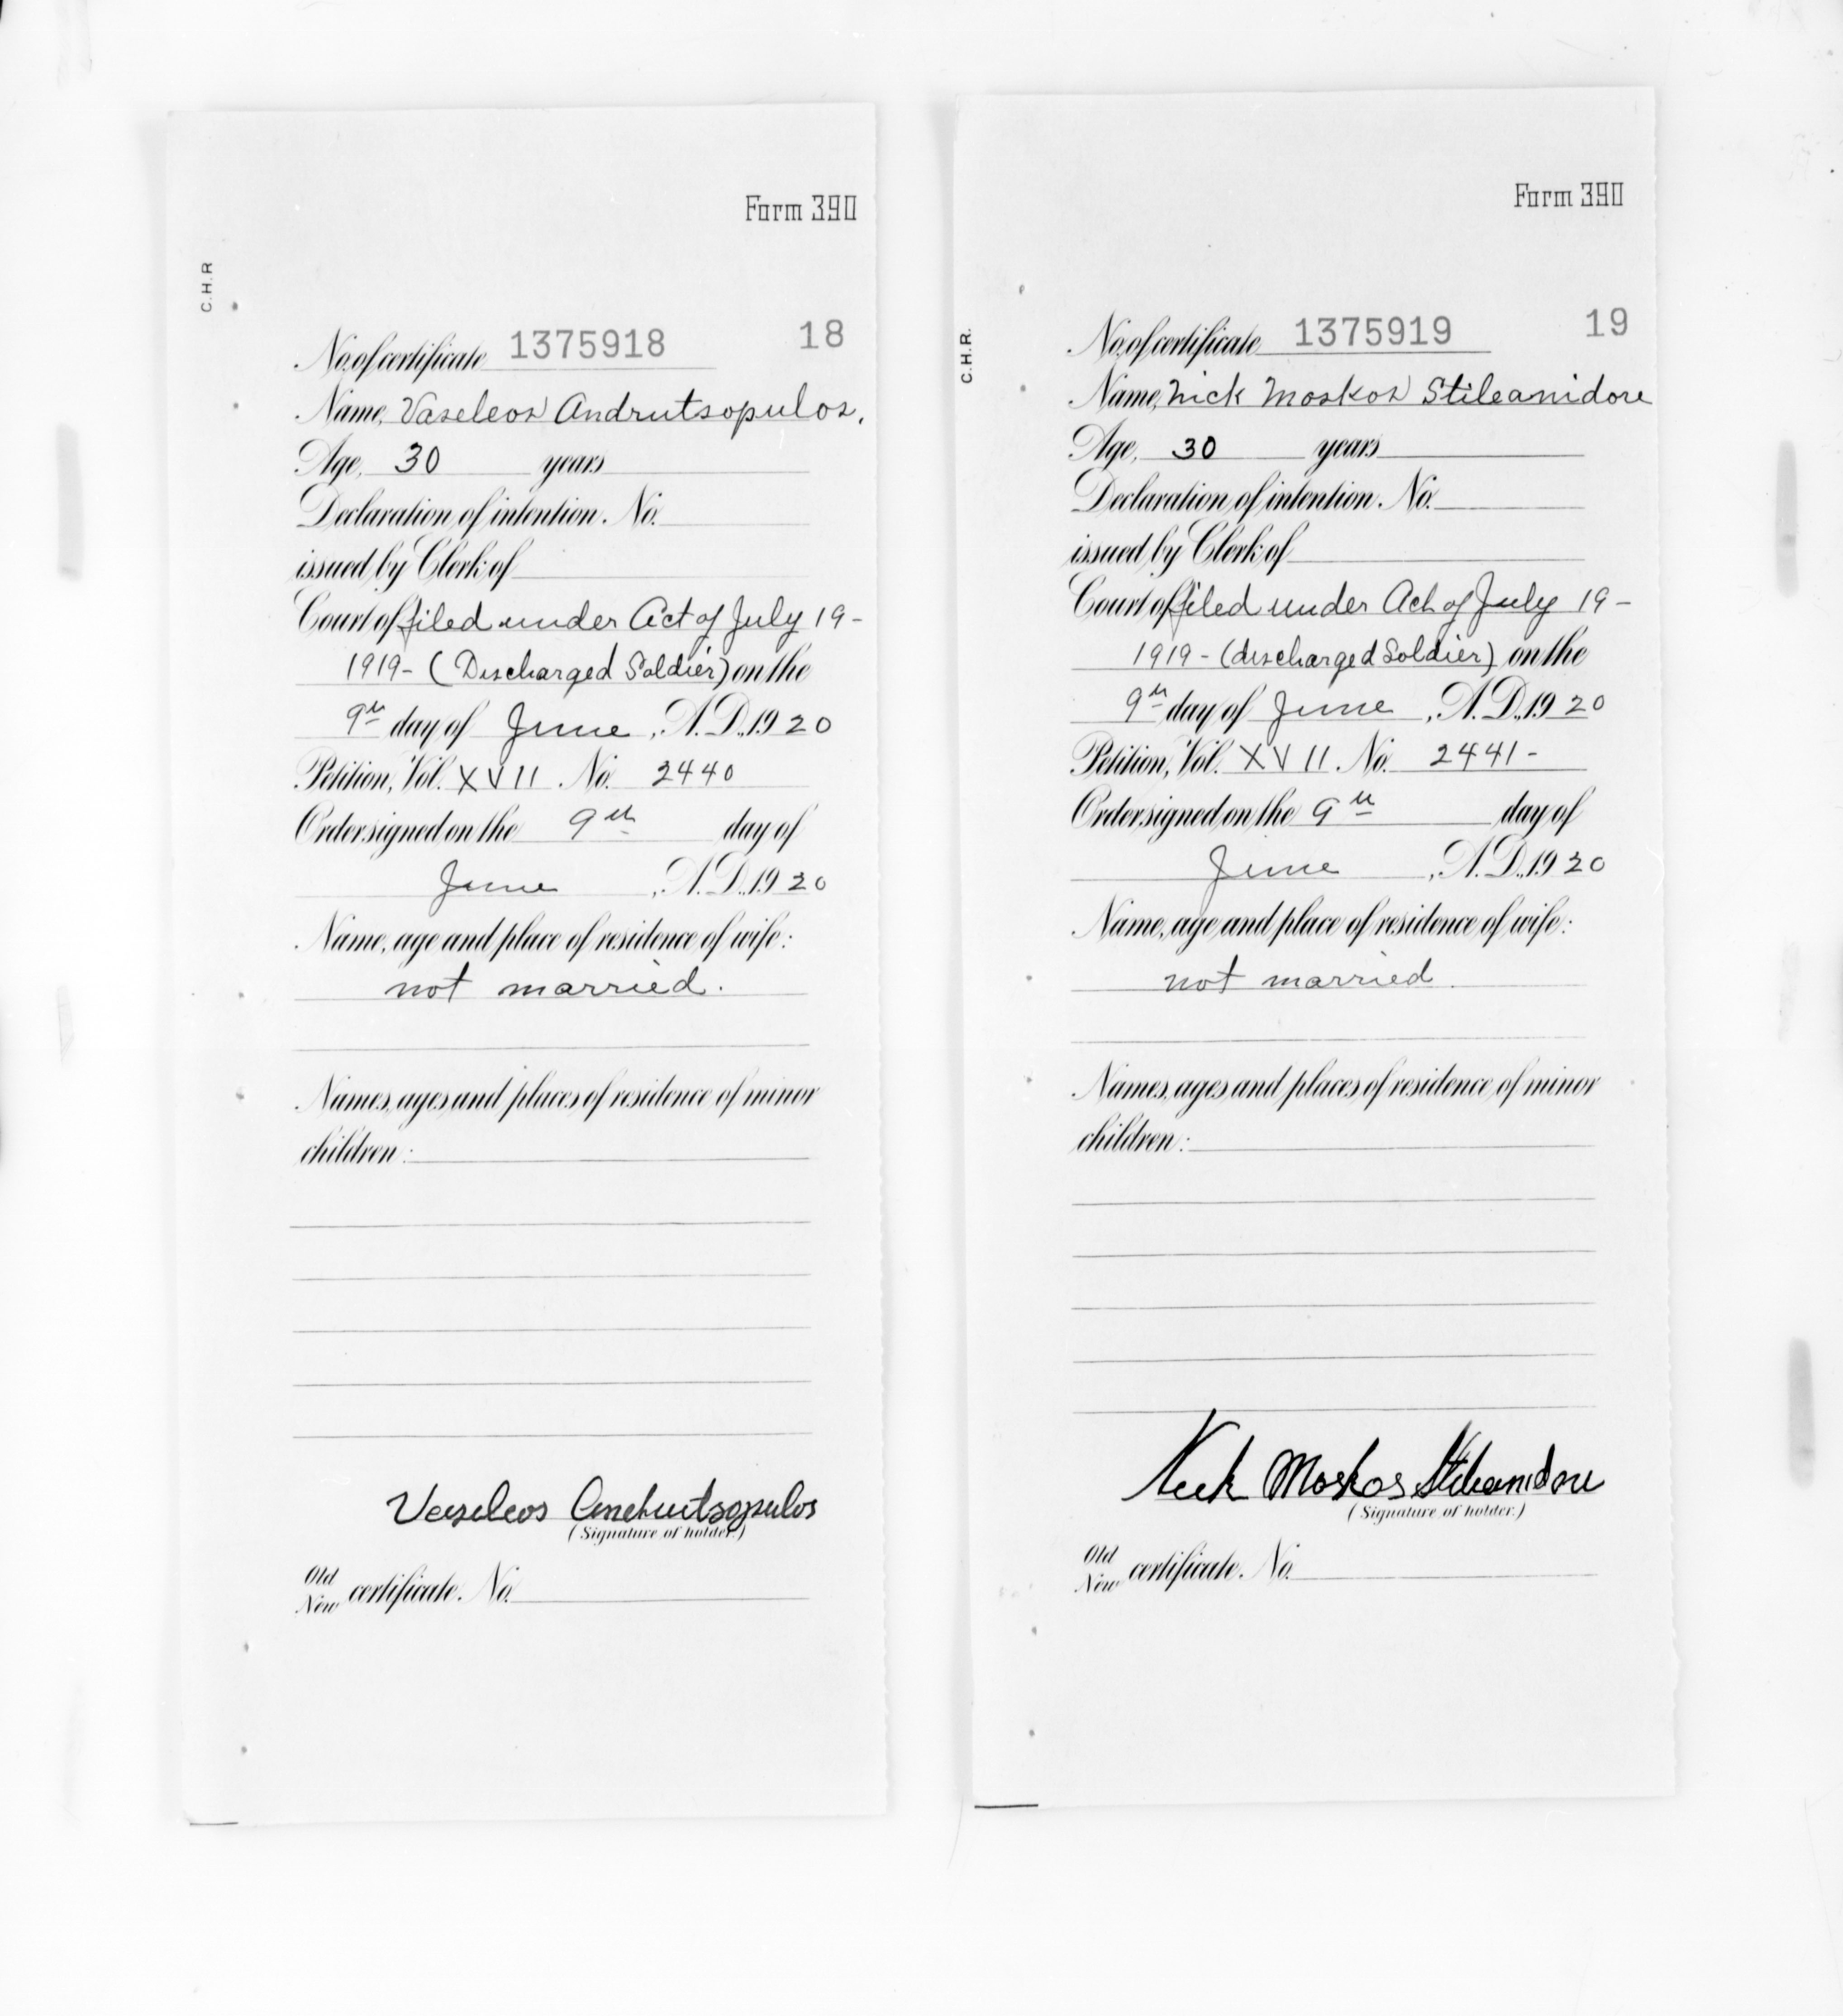 Form 390
C.H.R
No. of certificate 1375918 18
Name, Vaseleos Andrutsopulos.
Age, 30 years
Declaration of intention. No.
issued by Clerk of
Court of filed under Act of July 19-
1919- (Discharged Soldier) on the
9th day of June, A.D. 1920
Petition, Vol. XVII. No. 2440
Order signed on the 9th day of
June, A.D. 1920
Name, age and place of residence of wife:
not married.
Names, ages and places of residence of minor
children:
Vaseleos Andrutsopulos
(Signature of holder.)
Old
New certificate. No.
Form 390
C.H.R.
No. of certificate 1375919 19
Name, Nick Moskos Stileanidore
Age, 30 years
Declaration of intention. No.
issued by Clerk of
Court of filed under Act of July 19-
1919- (discharged Soldier) on the
9th day of June, A.D. 1920
Petition, Vol. XVII. No. 2441-
Order signed on the 9th day of
June, A.D. 1920
Name, age and place of residence of wife:
not married.
Names, ages and places of residence of minor
children:
Nick Moskos Stileanidore
(Signature of holder.)
Old
New certificate. No.